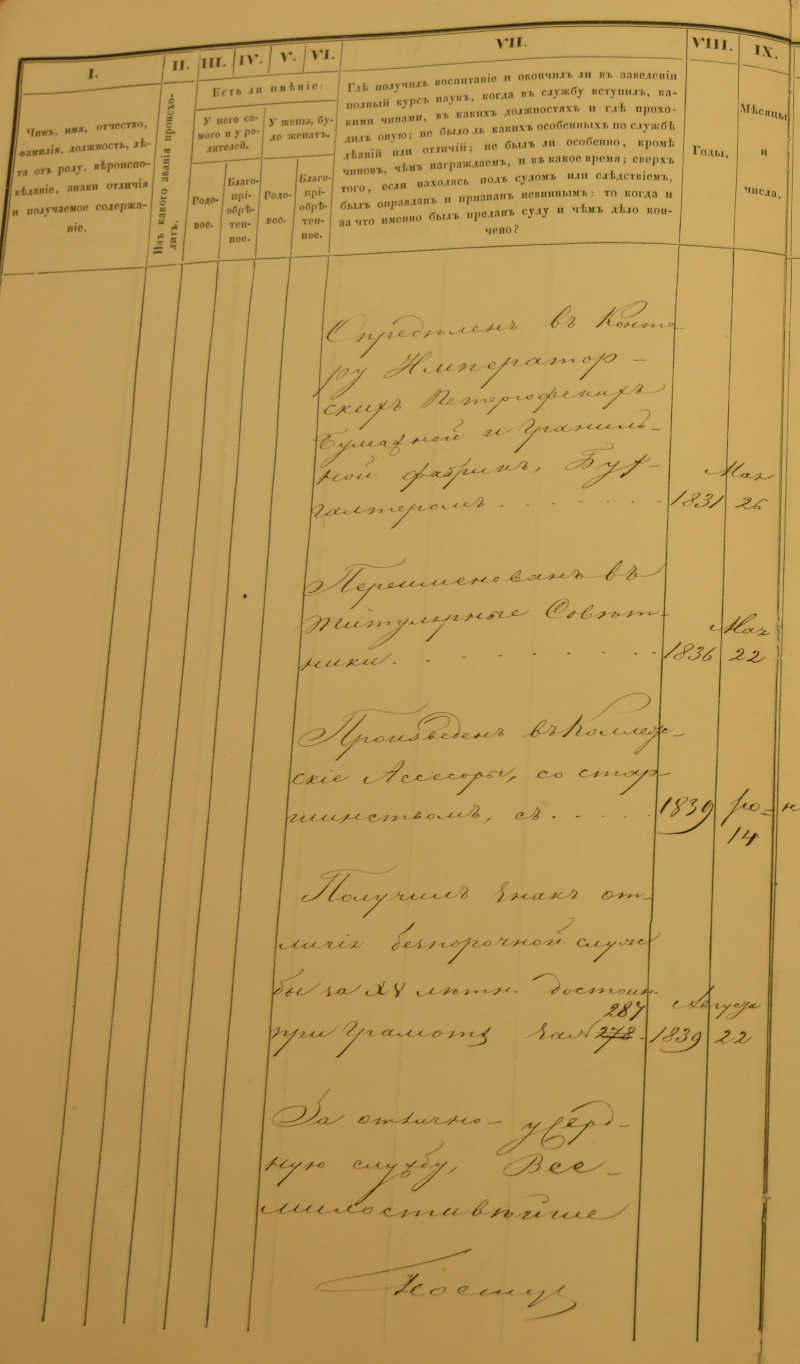 I.
II.
III.
IV.
V.
VI.
VII.
VIII.
IX.
Чинъ, имя, отчество,
фамилія, должность, лѣ-
та отъ роду, вѣроиспо-
вѣданіе, знаки отличія
и получаемое содержа-
ніе.
Изъ какого званія происхо-
дитъ.
Есть ли имѣніе:
У него са-
мого и у ро-
дителей.
У жены, бу-
де женатъ.
Родо-
вое.
Благо-
прі-
обрѣ-
тен-
ное.
Родо-
вое.
Благо-
прі-
обрѣ-
тен-
ное.
Гдѣ получилъ воспитаніе и окончилъ ли въ заведеніи
полный курсъ наукъ, когда въ службу вступилъ, ка-
кими чинами, въ какихъ должностяхъ и гдѣ прохо-
дилъ оную; не было ль какихъ особенныхъ по службѣ
дѣяній или отличій; не былъ ли особенно, кромѣ
чиновъ, чѣмъ награждаемъ, и въ какое время; сверхъ
того, если находясь подъ судомъ или слѣдствіемъ,
былъ оправданъ и признанъ невиннымъ: то когда и
за что именно былъ преданъ суду и чѣмъ дѣло кон-
чено?
Годы,
Мѣсяцы
и
числа.
Опредѣленъ въ Конто-
ру Император-
скихъ Петергофскихъ
Бумажной и Гранил-
ной фабрикъ, Бух-
галтеромъ . . . . . . . 1831 Мая 26
Переименованъ въ
Титулярные Совѣт-
ники. . . . . . . . 1836 Мая 22
Произведенъ въ Коллеж-
скіе Ассесоры, со стар-
шинствомъ, съ . . . . . 1839 14
Получилъ Знакъ от-
личія безпорочной служ
бы за XV лѣтъ. Достоин.
287
при Грамотѣ за № 278. 1839 Августа 22
За отлично-усерд-
ную службу, Все-
милостивѣйше